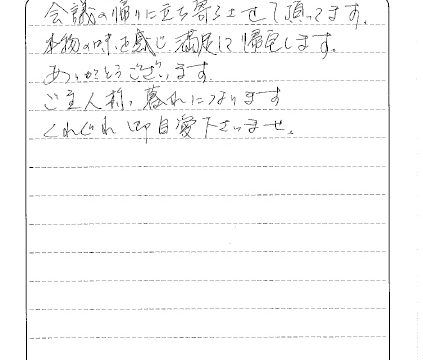 会議の帰りに立ち寄らさせて頂ってます。
本物の味を感じ、満足して帰宅します。
ありがとうございます。
ご主人様、暮れになります
くれぐれ 御自愛下さいませ。